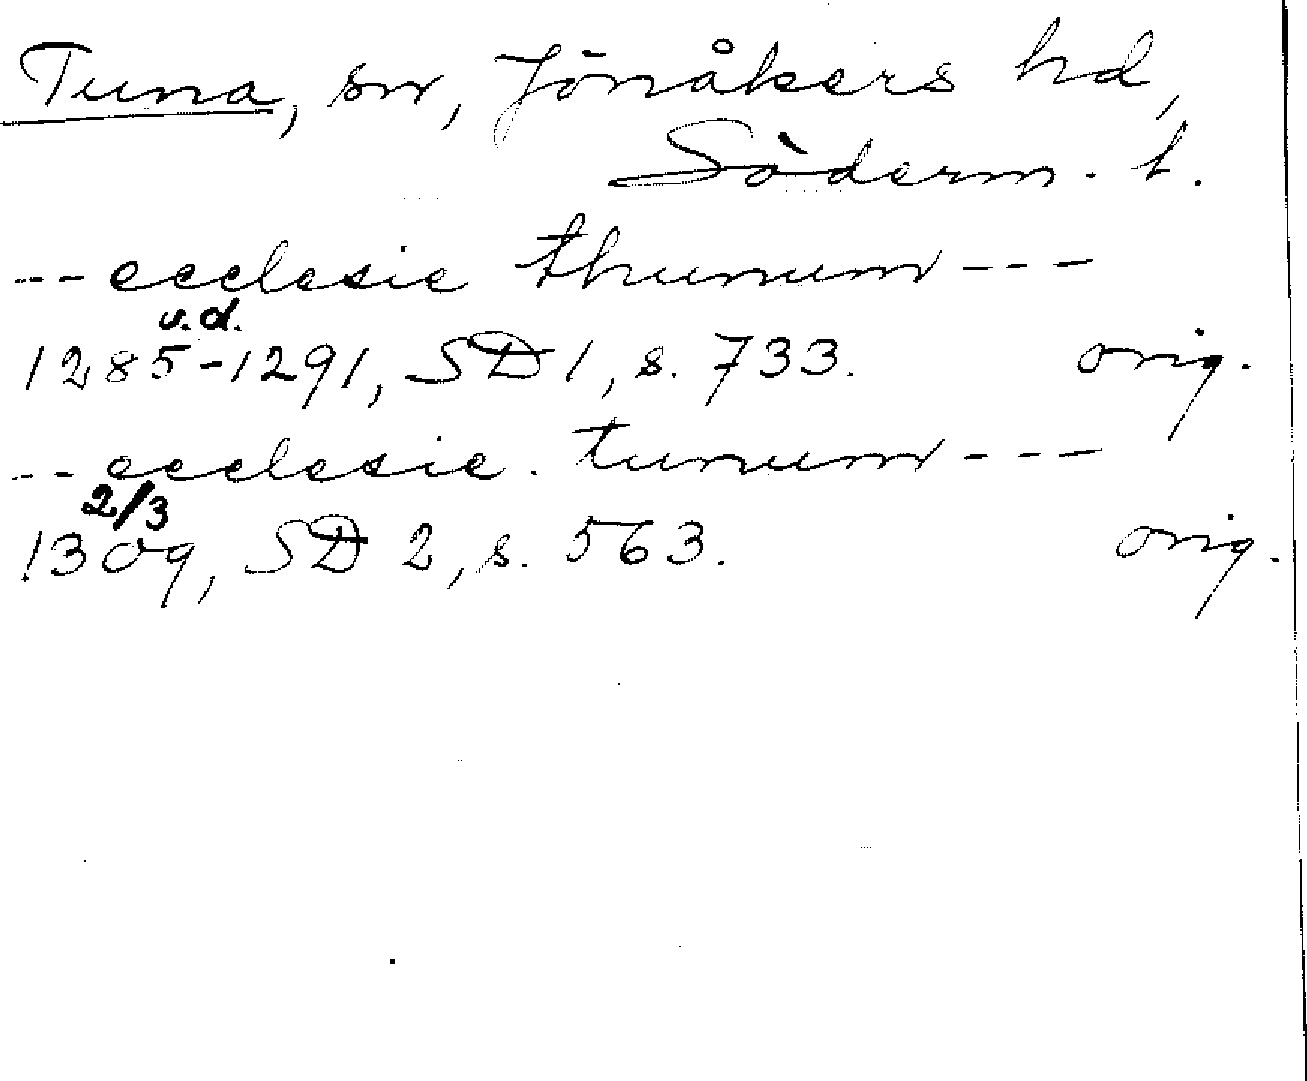 Tuna, sn, Jönåkers hd,
Söderm. l.
--- ecclesie thunum ---
u.d.
1285-1291, SD 1, s. 733. orig.
-- ecclesie. tunum ---
2/3
1309, SD 2, s. 563. orig.